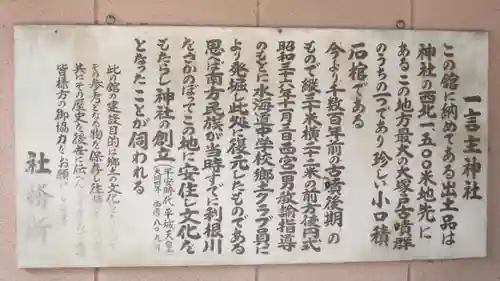 一言主神社
この舘に納めてある出土品は
神社の西北一五〇〇米地先に
ある この地方最大の大塚戸古墳群
のうちの一つであり珍しい小口積
石棺である
今より千数百年前の古墳後期の
もので縦三十米横二十二米の前方後円式
昭和三十八年十月三日 西宮一男教諭指導
のもとに水海道中学校郷土クラブ員に
より発掘し此処に復元したものである
思は南方民族が当時すでに利根川
をさかのぼってこの地に安住し文化を
もたらし神社の創立(平安時代平城天皇 大同四年 西暦八〇九年)
となったことが伺われる
此の舘の建設目的は郷土の文化
その参考となる物を保存し往
共にその歴史を後世に伝え
皆様方の御協力をお願
社務所